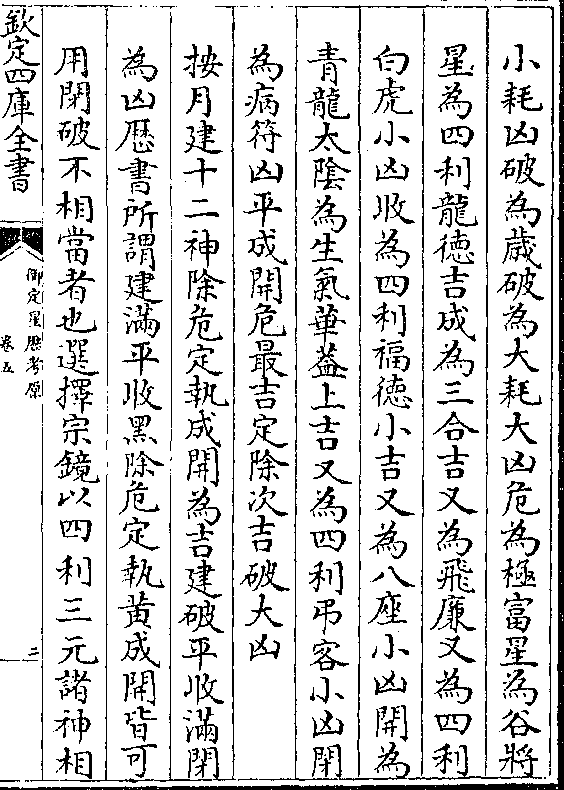 小耗凶破為歲破為大耗大凶危為極富星為谷將
星為四利龍德吉成為三合吉又為飛廉又為四利
白虎小凶收為四利福德小吉又為八座小凶開為
青龍太陰為生氣華葢上吉又為四利弔客小凶閉
為病符凶平成開危最吉定除次吉破大凶
按月建十二神除危定執成開為吉建破平收滿閉
為凶歷書所謂建滿平收黑除危定執黃成開皆可
用閉破不相當者也選擇宗鏡以四利三元諸神相
欽定四庫全書
御定星歷考原
卷五
三